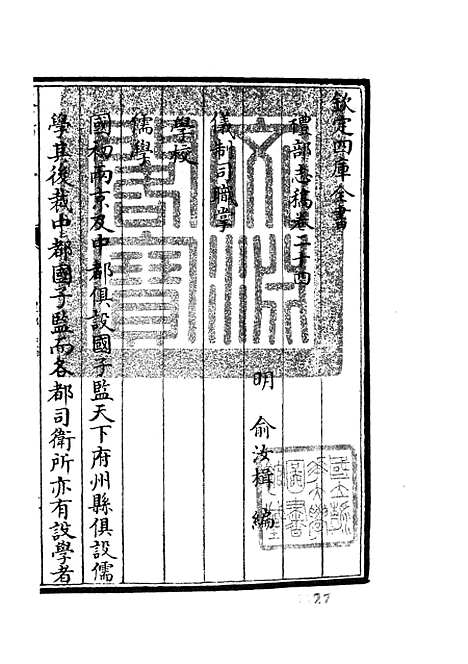 欽定四庫全書
禮部志稿卷二十四
明 俞汝楫 編
儀制司職掌
學校
儒學
國初兩京及中都俱設國子監天下府州縣俱設儒
學其後裁中都國子監而各都司衛所亦有設學者
文淵閣寶
27